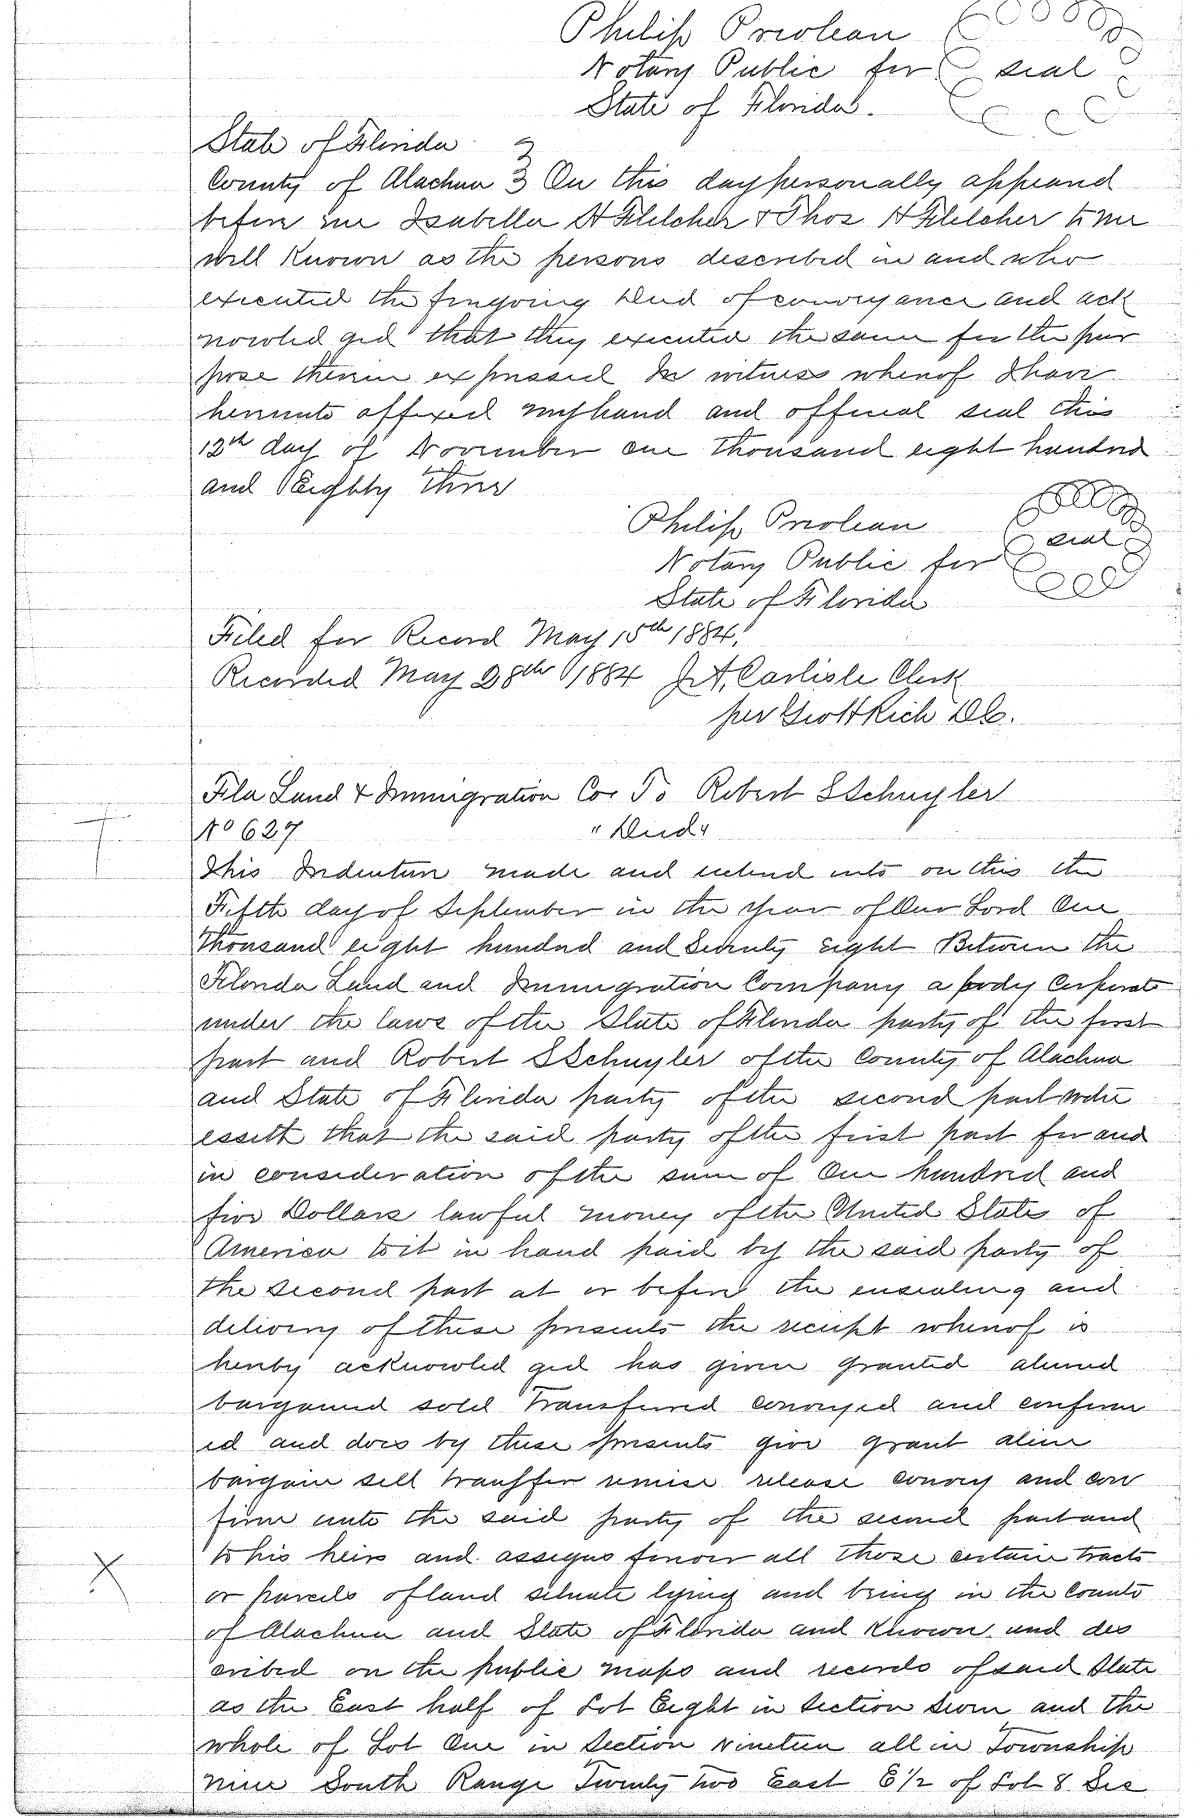 Philip Prioleau
Notary Public for seal
State of Florida.
State of Florida
County of Alachua } On this day personally appeared
before me Isabella H Fletcher & Thos H Fletcher to me
well known as the persons described in and who
executed the foregoing Deed of conveyance and ack
nowled ged that they executed the same for the pur
pose therein expressed In witness whereof I have
hereunto affixed my hand and official seal this
12th day of November one thousand eight hundred
and Eighty three
Philip Prioleau
seal
Notary Public for
State of Florida
Filed for Record May 15th 1884.
Recorded May 28th 1884 J. A. Carlisle Clerk
per Rich D.C.
Fla Land & Immigration Co. To Robert S Schuyler
No 627 "Deed"
This Indenture made and entered into on this the
Fifth day of September in the year of Our Lord One
thousand eight hundred and Seventy Eight Between the
Florida Land and Immigration Company a body Corporate
under the laws of the State of Florida party of the first
part and Robert S Schuyler of the County of Alachua
and State of Florida party of the second part witn
esseth that the said party of the first part for and
in consideration of the sum of One hundred and
five Dollars lawful money of the United States of
America to it in hand paid by the said party of
the second part at or before the ensealing and
delivery of these presents the receipt whereof is
hereby acknowled ged has given granted aliened
bargained sold transferred conveyed and confirm
ed and does by these presents give grant alien
bargain sell transfer remise release convey and con
firm unto the said party of the second part and
to his heirs and assigns forever all those certain tracts
or parcels of land situate lying and being in the County
of Alachua and State of Florida and known and des
cribed on the public maps and records of said State
as the East half of Lot Eight in Section Seven and the
whole of Lot One in Section nineteen all in Township
nine South Range Twenty two East E 1/2 of Lot 8 Sec